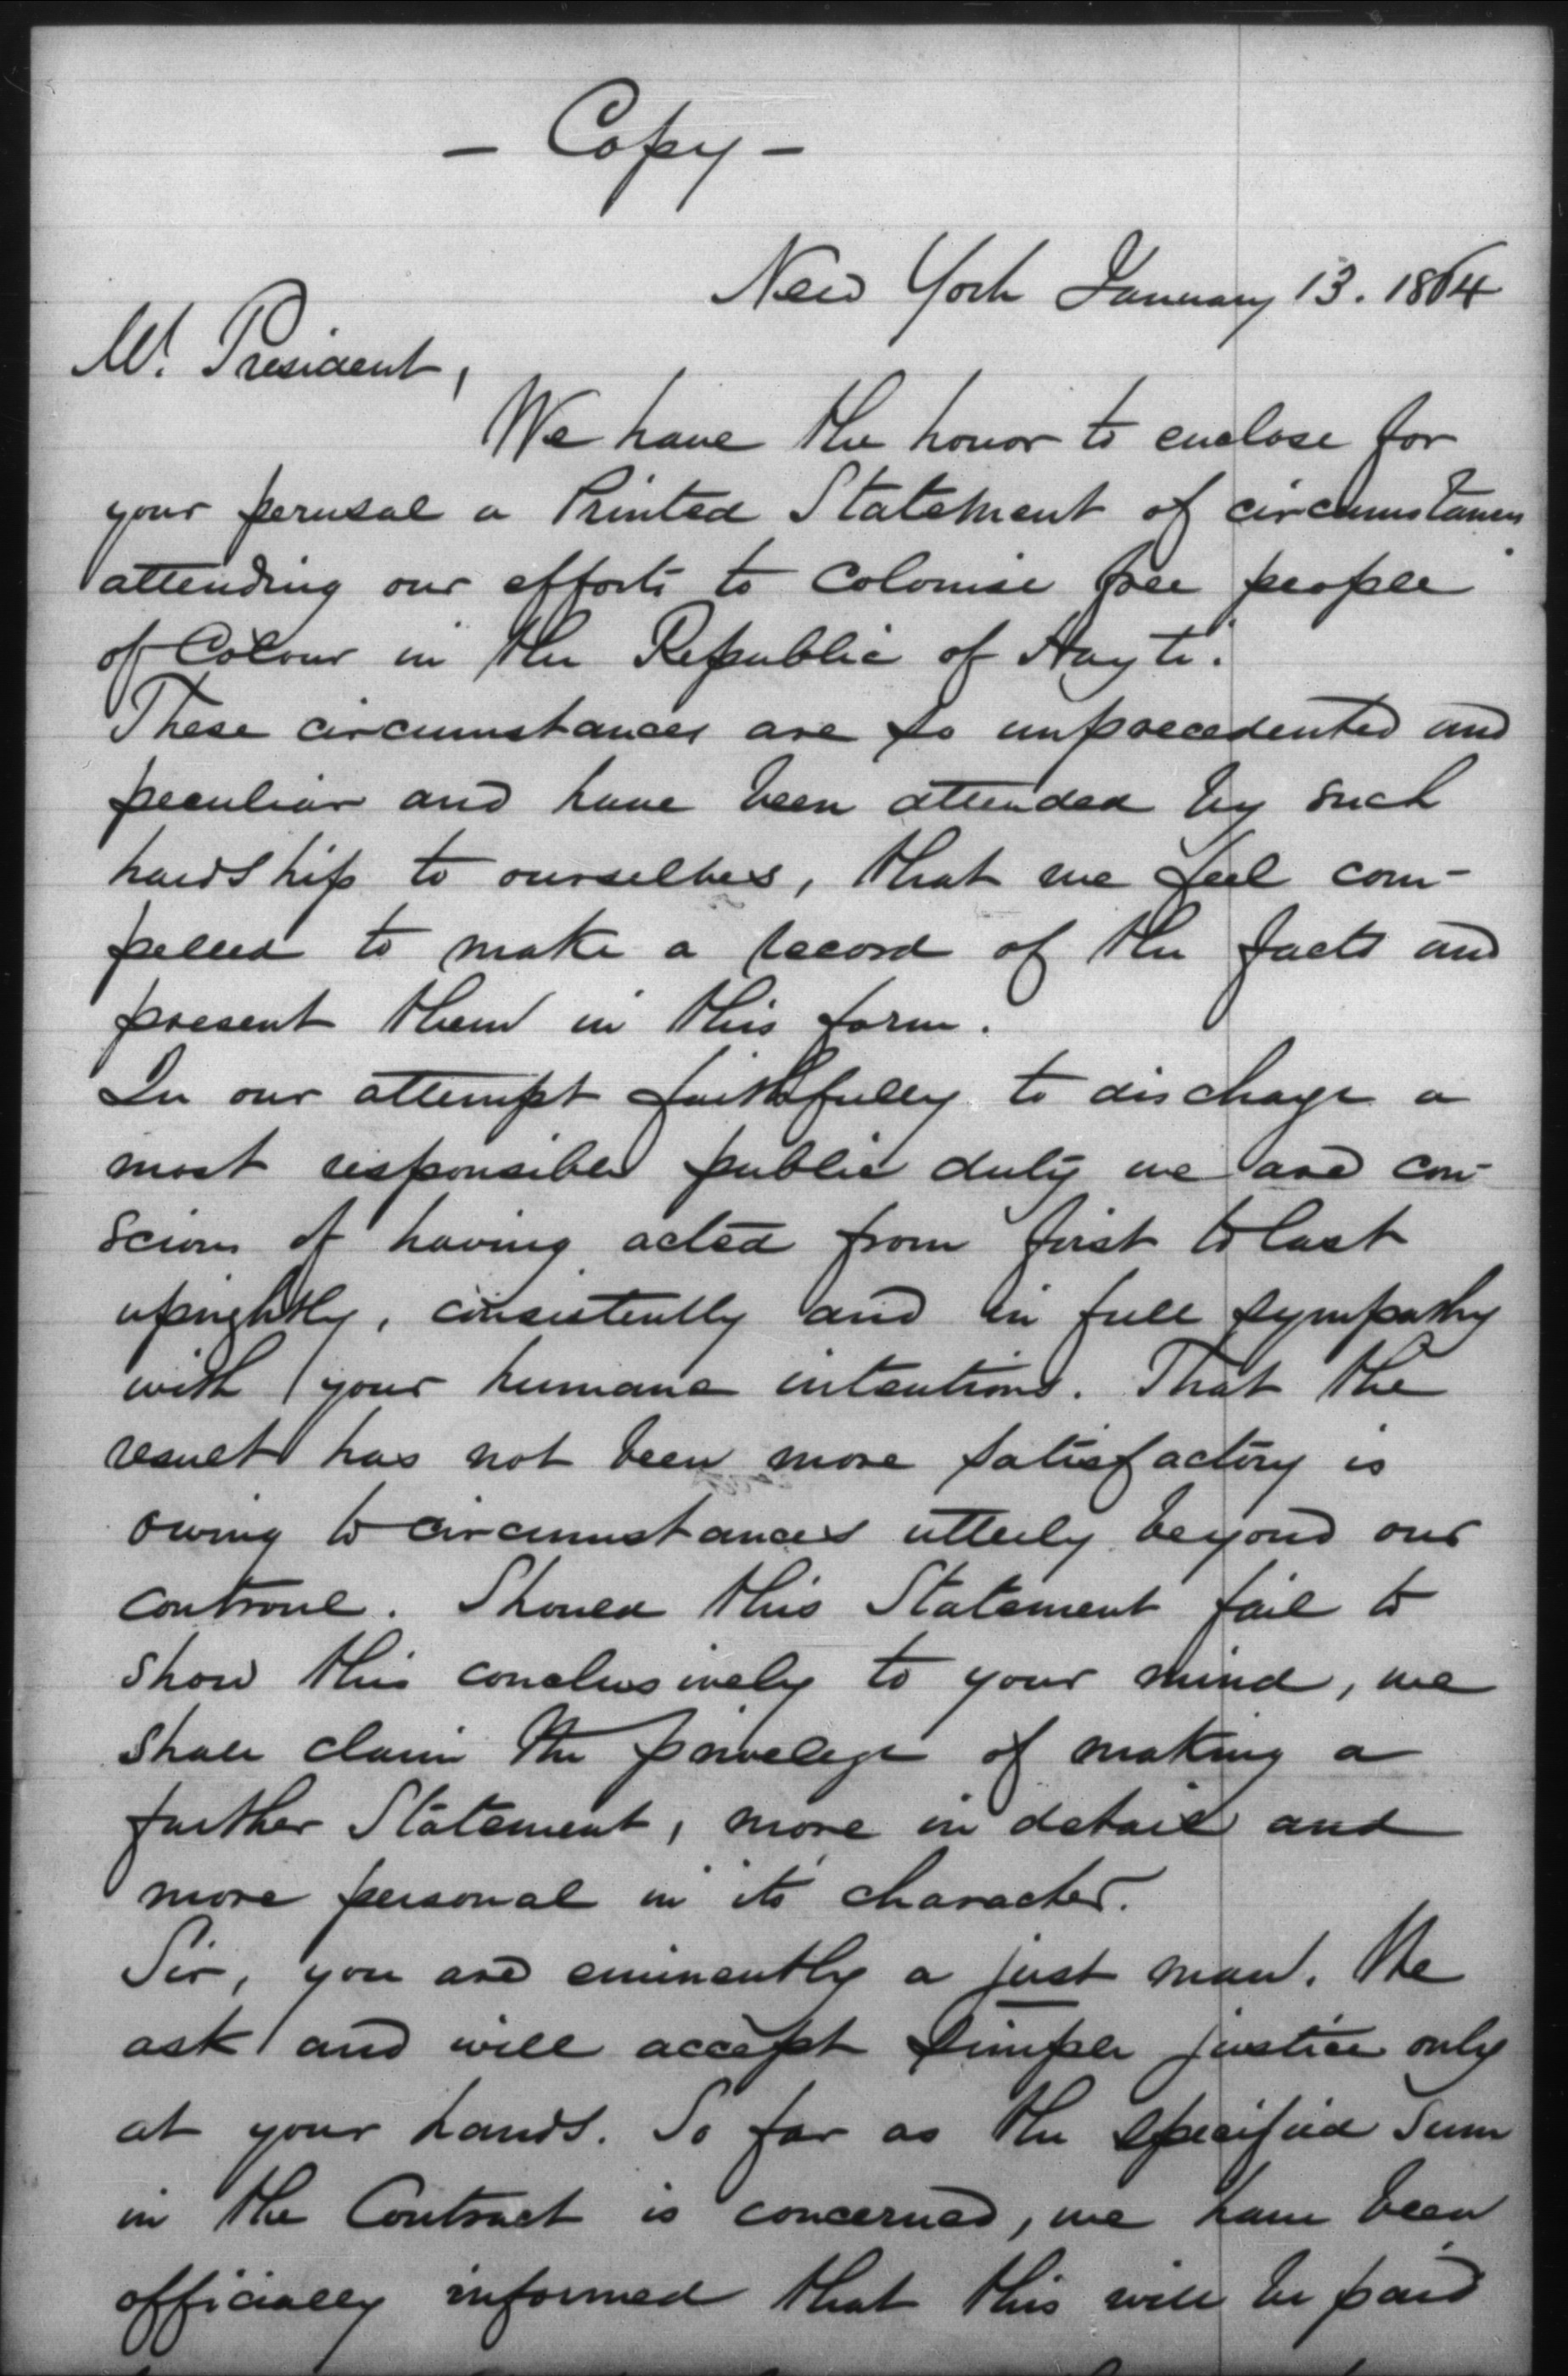 - Copy -
New York January 13. 1864
Mr. President,
We have the honor to enclose for
your perusal a Printed Statement of circumstances
attending our efforts to colonise free people
of Colour in the Republic of Hayti.
These circumstances are so unprecedented and
peculiar and have been attended by such
hardship to ourselves, that we feel com-
pelled to make a record of the facts and
present them in this form.
In our attempt faithfully to discharge a
most responsible public duty we are con-
scious of having acted from first to last
uprightly, consistently and in full sympathy
with your humane intentions. That the
result has not been more satisfactory is
owing to circumstances utterly beyond our
controul. Should this Statement fail to
show this conclusively to your mind, we
shall claim the privelege of making a
further Statement, more in detail and
more personal in its character.
Sir, you are eminently a just man. We
ask and will accept simple justice only
at your hands. So far as the specified sum
in the Contract is concerned, we have been
officially informed that this will be paid